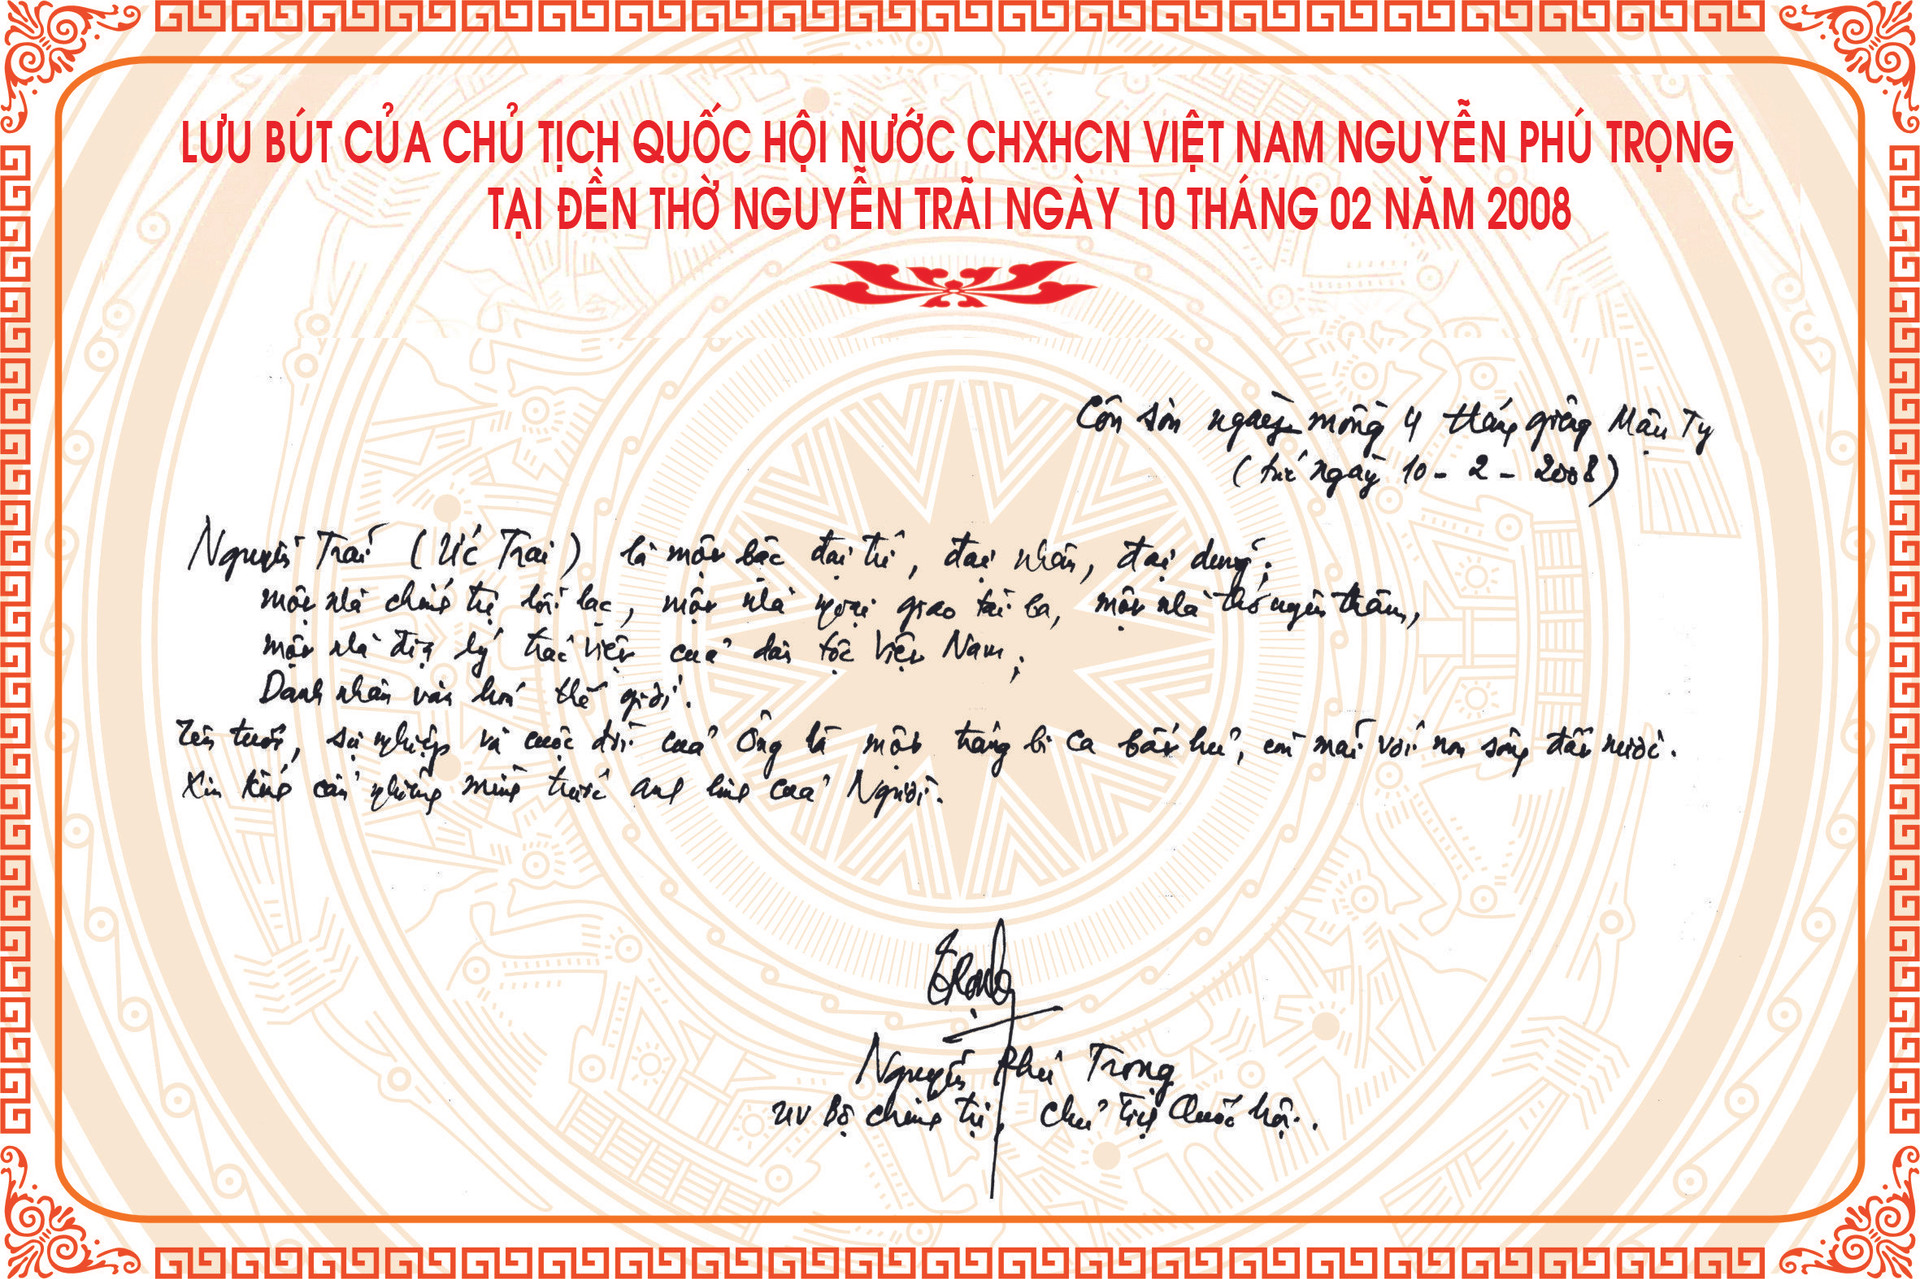 LƯU BÚT CỦA CHỦ TỊCH QUỐC HỘI NƯỚC CHXHCN VIỆT NAM NGUYỄN PHÚ TRỌNG
TẠI ĐỀN THỜ NGUYỄN TRÃI NGÀY 10 THÁNG 02 NĂM 2008
Côn Sơn ngày mồng 4 tháng giêng Mậu Tý
(tức ngày 10 - 2 - 2008)
Nguyễn Trãi (Ức Trai) là một bậc đại trí, đại nhân, đại dũng;
một nhà chính trị lỗi lạc, một nhà ngoại giao tài ba, một nhà thơ uyên thâm,
một nhà địa lý trác việt của dân tộc Việt Nam;
Danh nhân văn hoá thế giới.
Tên tuổi, sự nghiệp và cuộc đời của Ông là một tráng bi ca bất hủ, còn mãi với non sông đất nước.
Xin kính cẩn nghiêng mình trước anh linh của Người.
Trọng
Nguyễn Phú Trọng
UV Bộ chính trị, Chủ tịch Quốc hội.